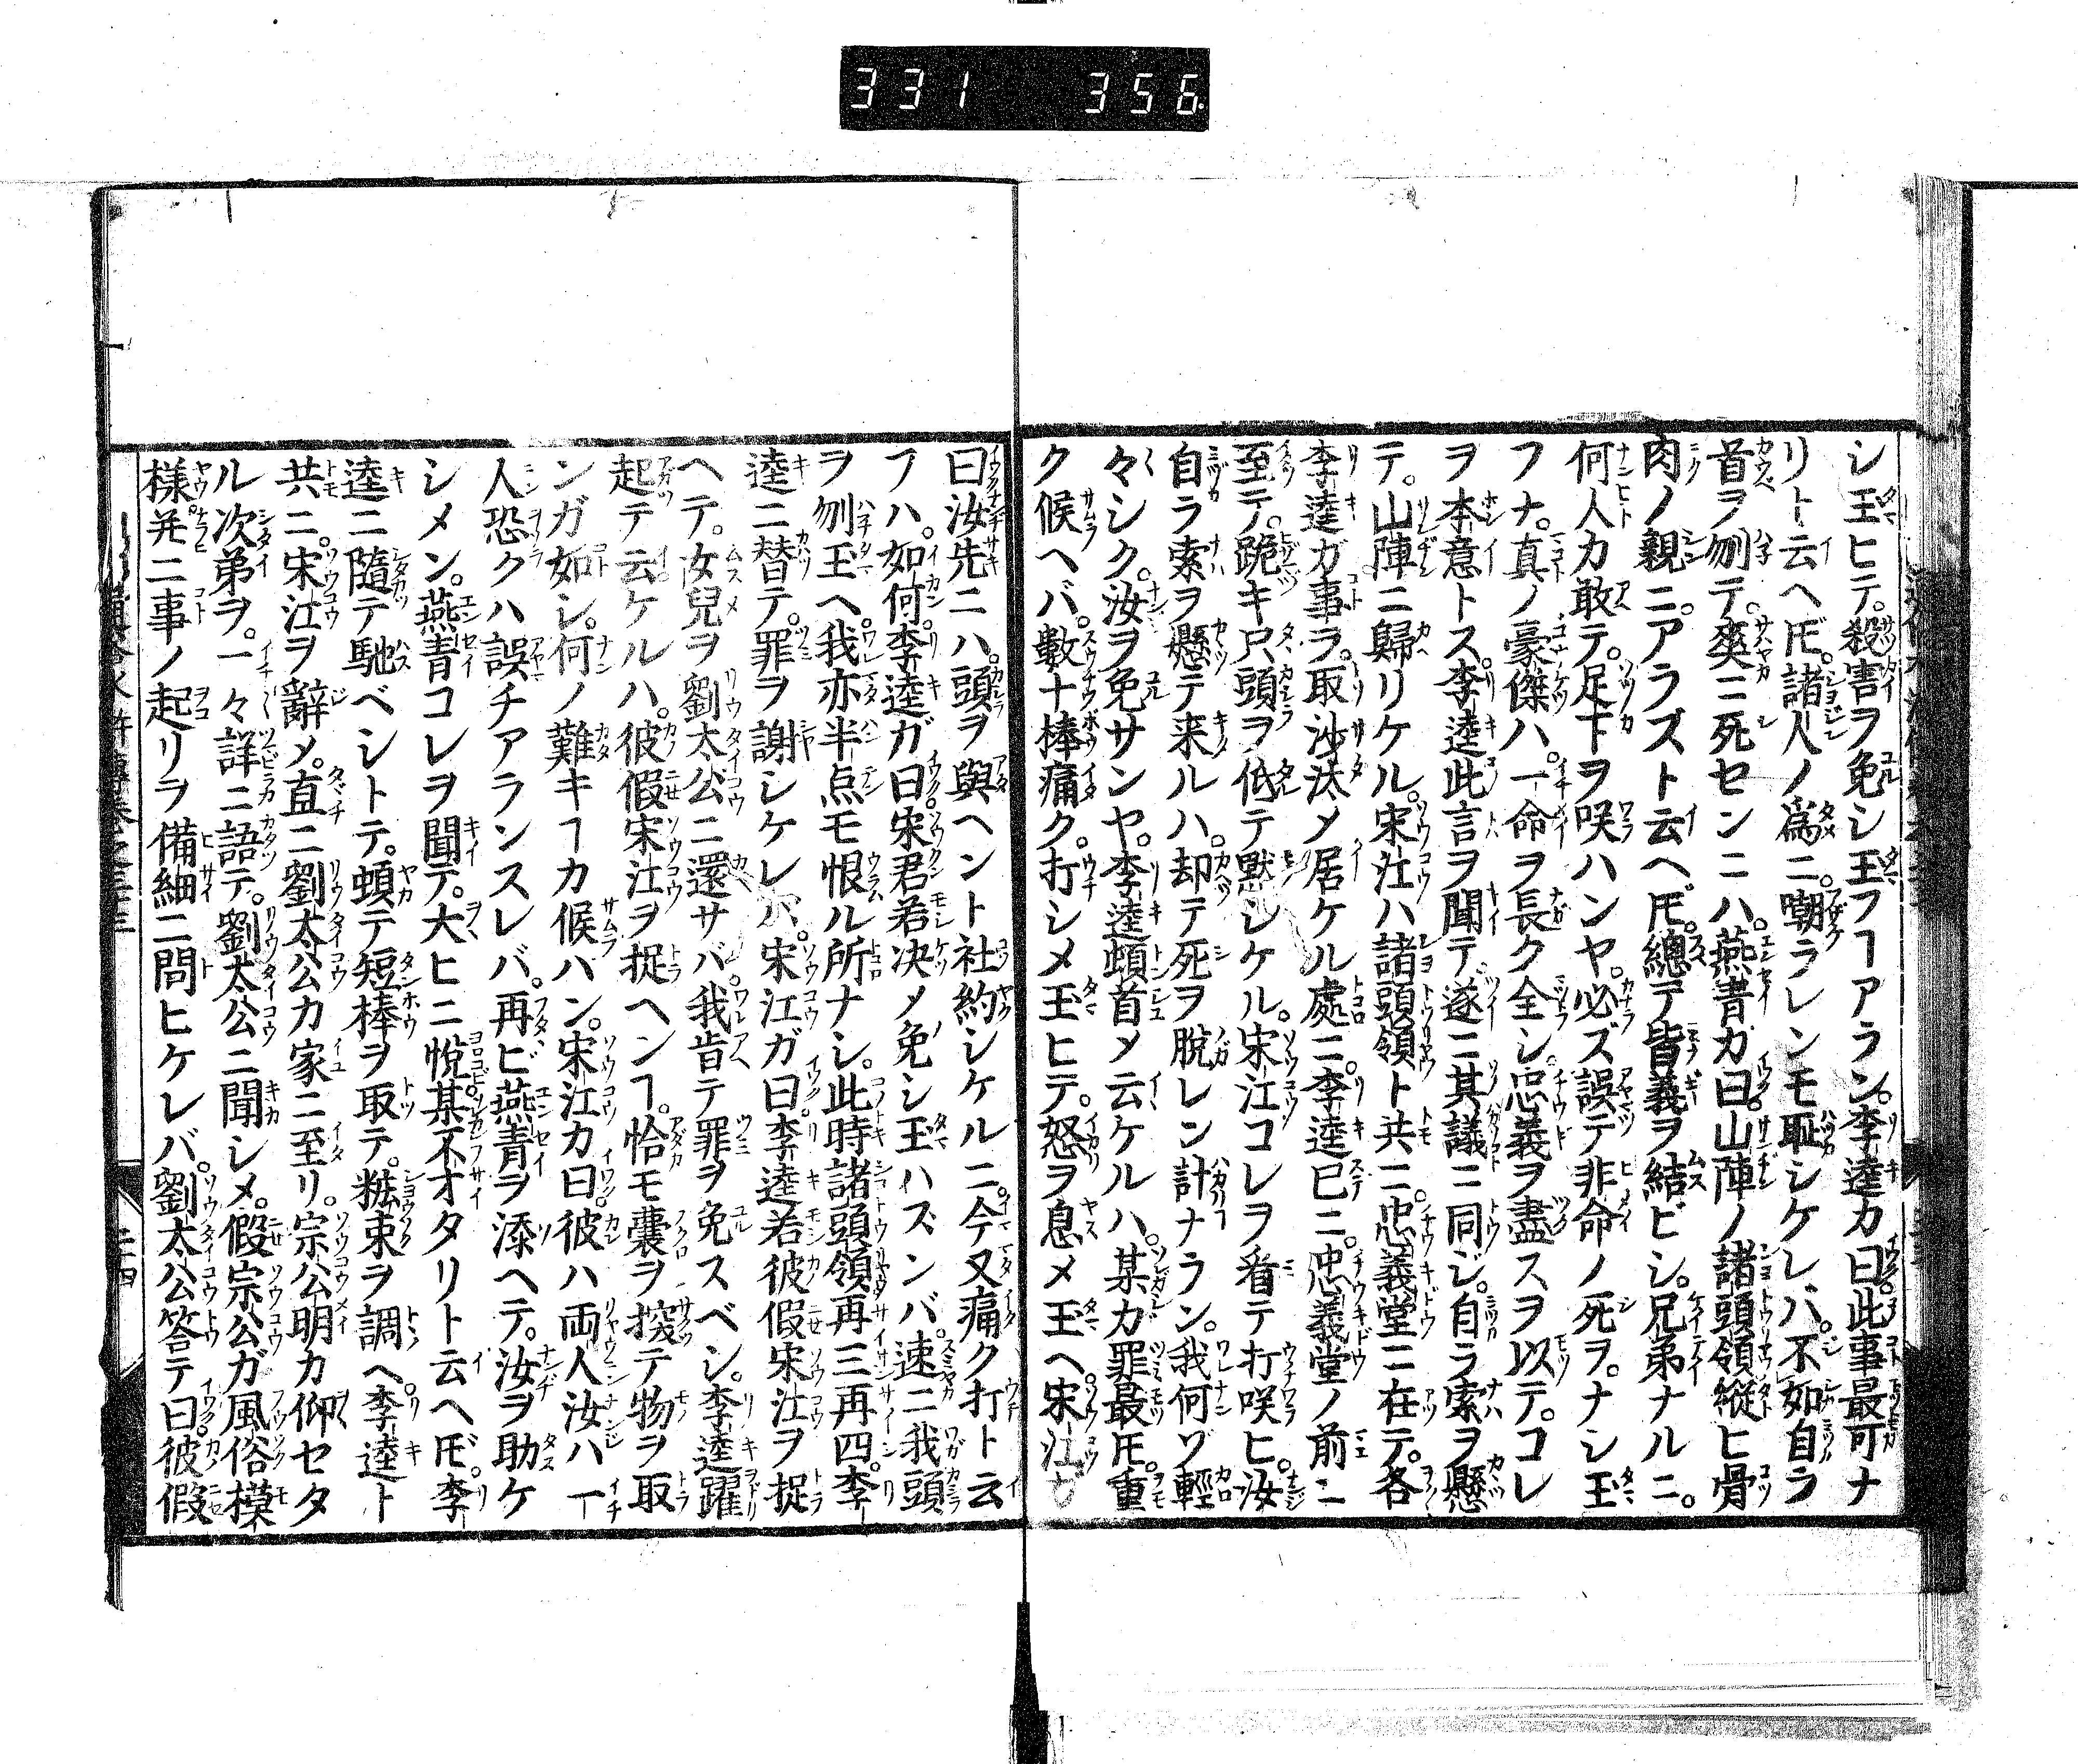 331 356
シ玉ヒテ。殺害ヲ免シ玉フヿアラン。李逵カ曰。此事最可ナ
リト云ヘ𪜈。諸人ノ爲ニ。嘲ラレンモ恥シケレバ。不如自ラ
首ヲ刎テ。爽ニ死センニハ。燕青カ曰。山陣ノ諸頭領縦ヒ骨
肉ノ親ニ。アラズト云ヘ𪜈。總テ皆義ヲ結ビシ。兄弟ナルニ。
何人カ敢テ。足下ヲ咲ハンヤ。必ズ誤テ非命ノ死ヲ。ナシ玉
フナ。真ノ豪傑ハ。一命ヲ長ク全シ忠義ヲ盡スヲ以テ。コレ
ヲ本意トス。李逵此言ヲ聞テ遂ニ其議ニ同ジ。自ラ索ヲ懸
テ。山陣ニ歸リケル。宋江ハ諸頭領ト共ニ。忠義堂ニ在テ。各
李逵ガ事ヲ。取沙汰メ居ケル處ニ。李逵已ニ。忠義堂ノ前ニ
至テ。跪キ只頭ヲ低テ默シケル。宋江コレヲ看テ打咲ヒ。汝
自ラ索ヲ懸テ来ルハ。却テ死ヲ脱レン計ナラン。我何ゾ輕
々シク。汝ヲ免サンヤ。李逵頓首メ云ケルハ。某カ罪最𪜈重
ク候ヘバ。數十棒痛ク。打シメ玉ヒテ。怒ヲ息メ玉ヘ宋江
曰汝先ニハ。頭ヲ與ヘント社約シケルニ。今又痛ク打ト云
フハ。如何。李逵ガ曰宋君若决メ免シ玉ハズンバ。速ニ我頭
ヲ刎玉ヘ。我亦半点モ恨ル所ナシ。此時諸頭領再三再四。李
逵ニ替テ。罪ヲ謝シケレバ。宋江ガ曰李逵若彼假宋江ヲ捉
ヘテ。女兒ヲ劉太公ニ還サバ。我肯テ罪ヲ免スベシ。李逵躍
起テ云ケルハ。彼假宋江ヲ捉ヘンヿ。恰モ囊ヲ探テ物ヲ取
ンガ如シ。何ノ難キヿカ候ハン。宋江カ曰。彼ハ両人汝ハ一
人恐クハ誤チアランスレバ。再ビ燕青ヲ添ヘテ。汝ヲ助ケ
シメン。燕青コレヲ聞テ。大ヒニ悅。某不才タリト云ヘ𪜈。李
逵ニ隨テ馳ベシトテ。頓テ短棒ヲ取テ。粧束ヲ調ヘ。李逵ト
共ニ。宋江ヲ辭メ。直ニ劉太公カ家ニ至リ。宗公明カ仰セタ
ル次弟ヲ。一々詳ニ語テ。劉太公ニ聞シメ。假宗公ガ風俗模
様。并ニ事ノ起リヲ備細ニ問ヒケレバ。劉太公答テ曰。彼假
二十四